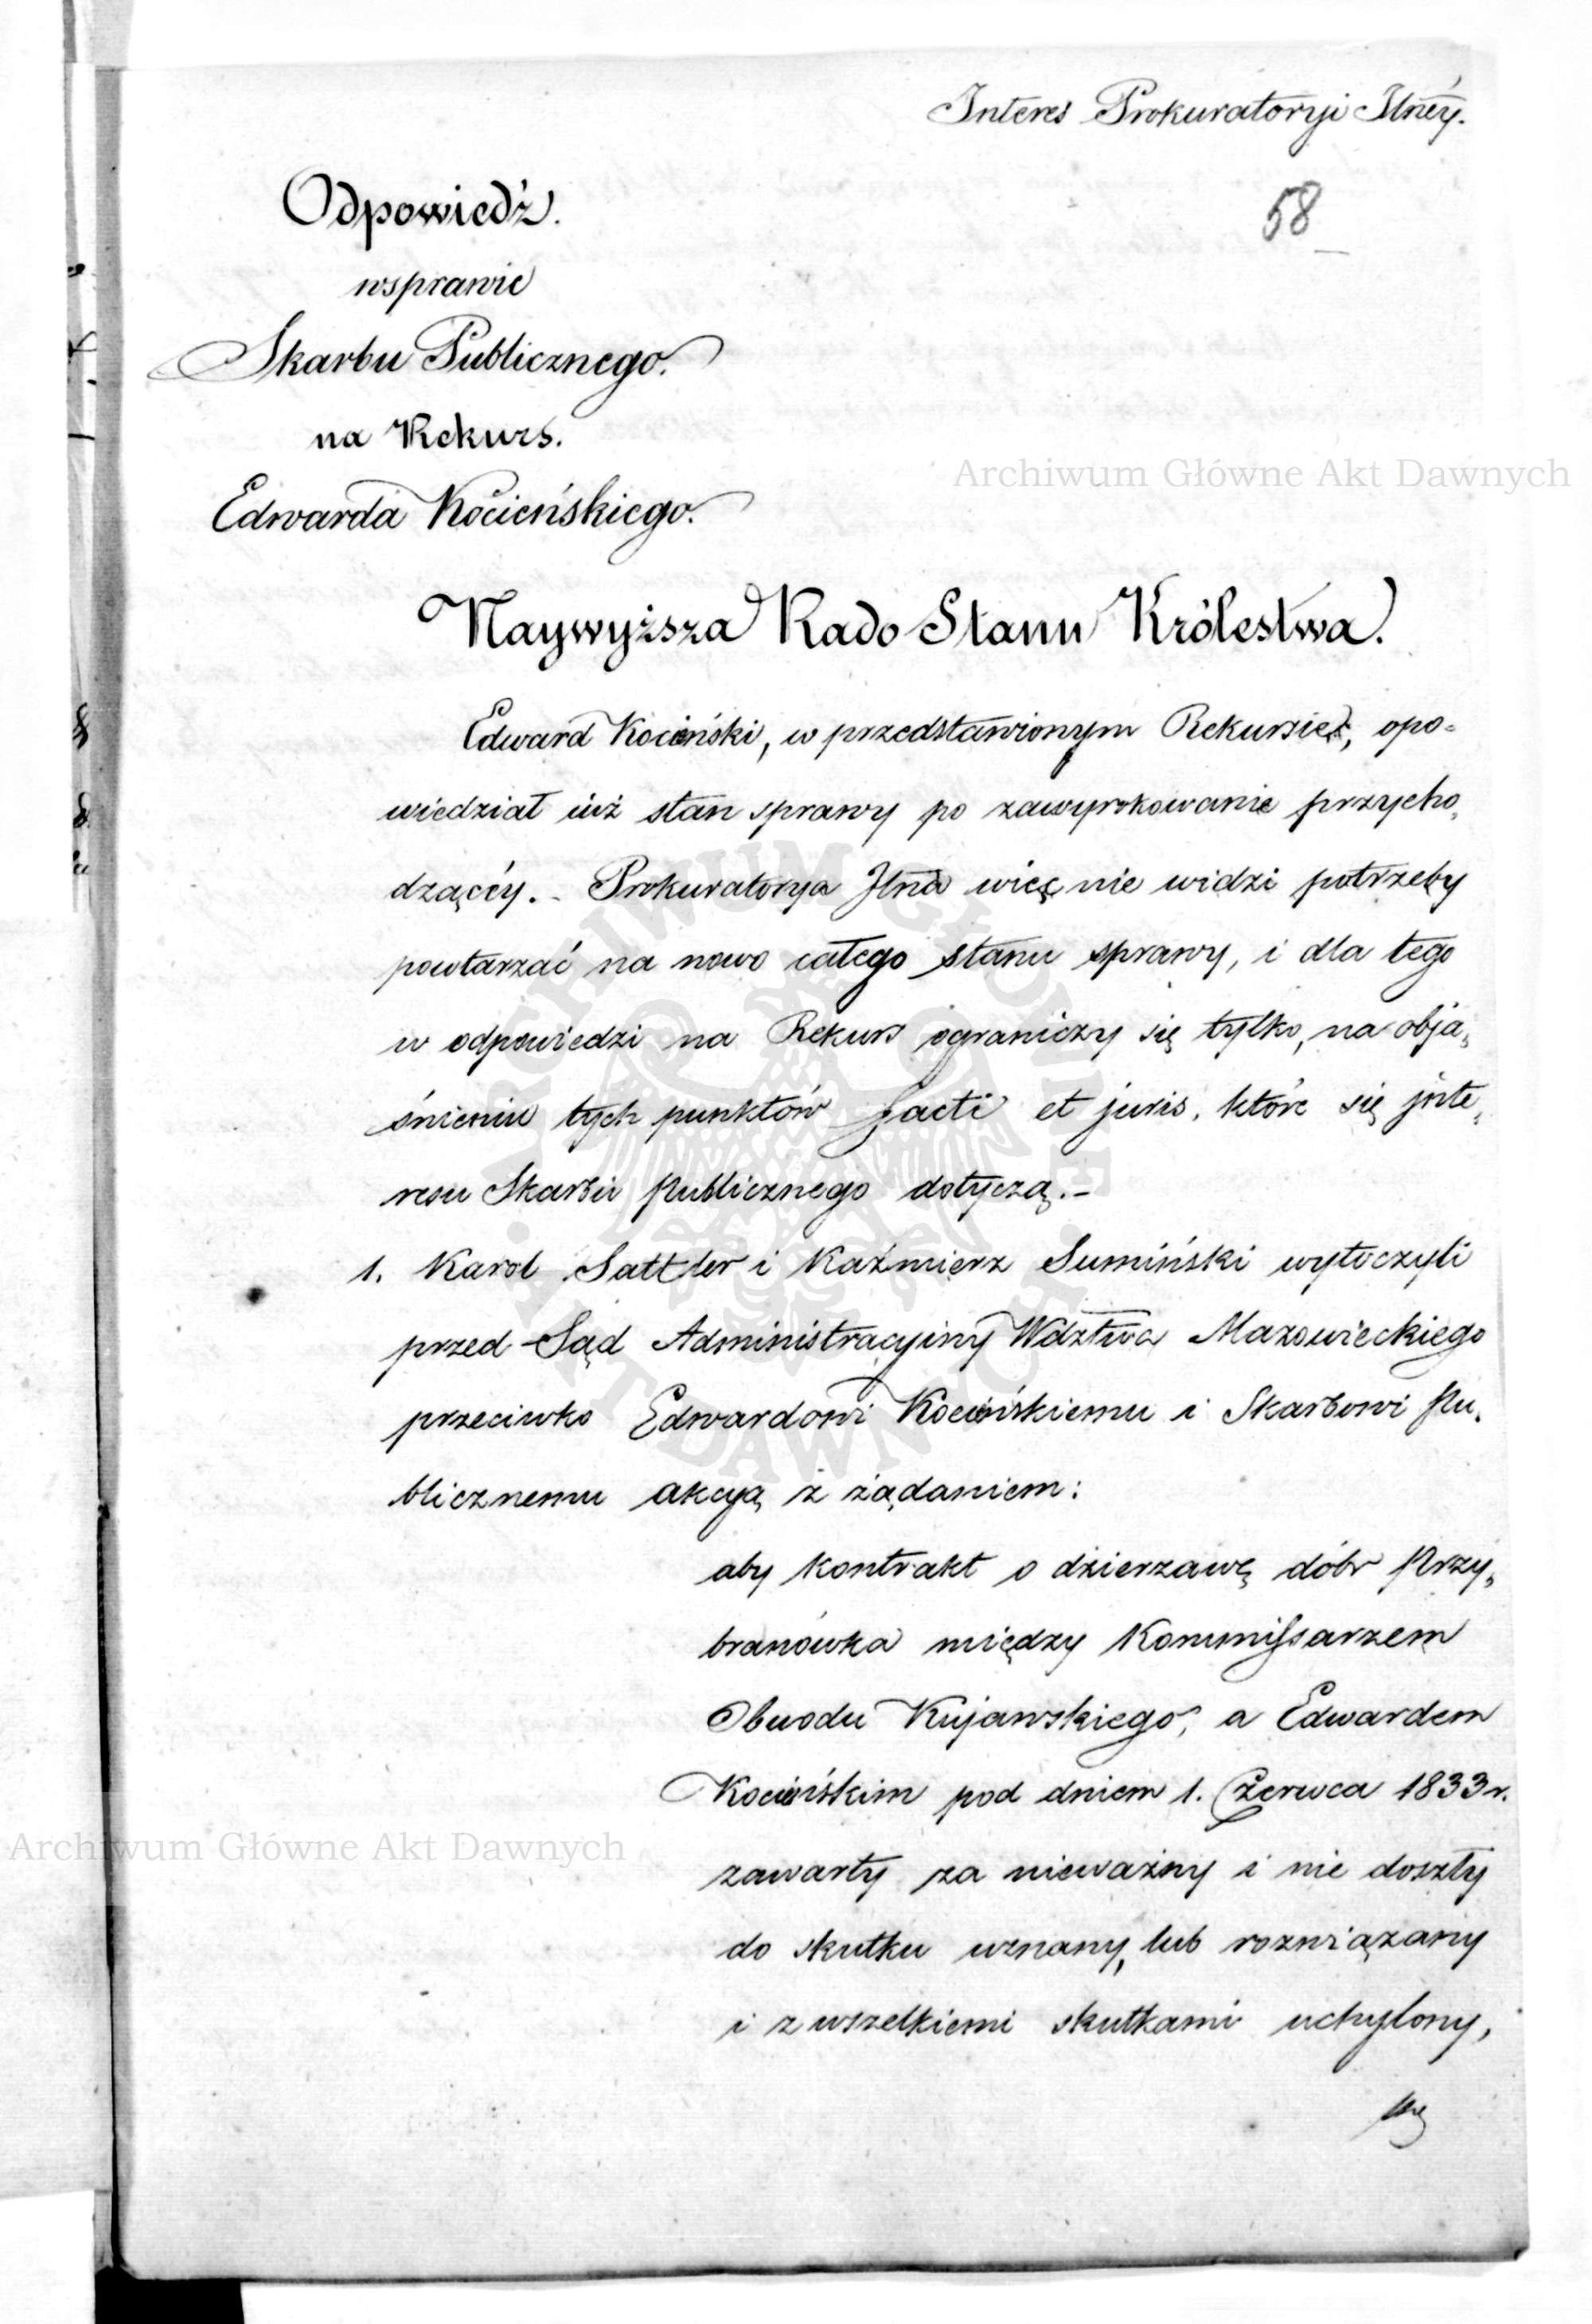 Interes Prokuratoryi Jlnéy.
58
Odpowiedź.
wsprawie
Skarbu Publicznego.
na Rekurs.
Edwarda Kocieńskiego.
Archiwum Główne Akt Dawnych
Naywyższa Rado Stanu Królestwa.
Edward Kocieński, w przedstawionym Rekursie, opo-
wiedział iuż stan sprawy po zawyrokowanie przycho„
dzącéy. - Prokuratorya Jlna więc nie widzi potrzeby
powtarzać na nowo całego stanu sprawy, i dla tego
w odpowiedzi na Rekurs ograniczy się tylko, na obja„
śnieniu tych punktów facti et juris, które się jnte„
resu Skarbu publicznego dotyczą. -
1. Karol Sattler i Kaźmierz Sumiński wytoczyli
przed Sąd Administracyiny Wdztwa Mazowieckiego
przeciwko Edwardowi Kocieńskiemu i Skarbowi Pu„
blicznemu akcyą z żądaniem:
aby kontrakt o dzierzawę dóbr Przy„
branówka między Kommissarzem
Obwodu Kujawskiego, a Edwardem
Kocieńskim pod dniem 1. Czerwca 1833 r.
Archiwum Główne Akt Dawnych
zawarty za nieważny i nie doszły
do skutku uznany, lub rozwiązany
i z wszelkiemi skutkami uchylony,
ARCHIWUM GŁÓWNE AKT DAWNYCH